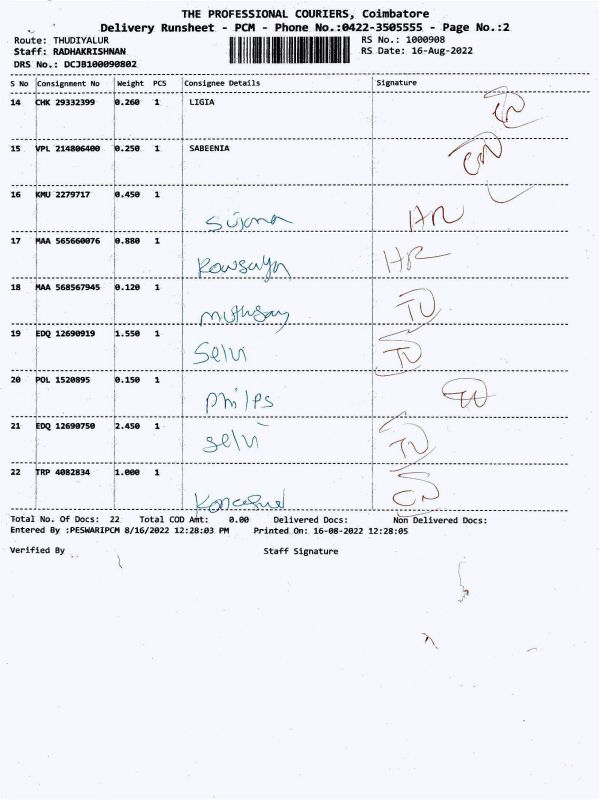 THE PROFESSIONAL COURIERS, Coimbatore
Delivery Runsheet - PCM - Phone No.:0422-3505555 - Page No.:2
Route: THUDIYALUR RS No.: 1000908
Staff: RADHAKRISHNAN RS Date: 16-Aug-2022
DRS No.: DCJB100090802
S No Consignment No Weight PCS Consignee Details Signature
14 CHK 29332399 0.260 1 LIGIA CN
15 VPL 214806400 0.250 1 SABEENIA CN
16 KMU 2279717 0.450 1
Sujana HR
17 MAA 565660076 0.880 1
Kowsalya HR
18 MAA 568567945 0.120 1
TU
19 EDQ 12690919 1.550 1
Selvi TU
20 POL 1520895 0.150 1
Philps TU
21 EDQ 12690750 2.450 1
Selvi TU
22 TRP 4082834 1.000 1
CN
Total No. Of Docs: 22 Total COD Amt: 0.00 Delivered Docs: Non Delivered Docs:
Entered By :PESWARIPCM 8/16/2022 12:28:03 PM Printed On: 16-08-2022 12:28:05
Verified By Staff Signature